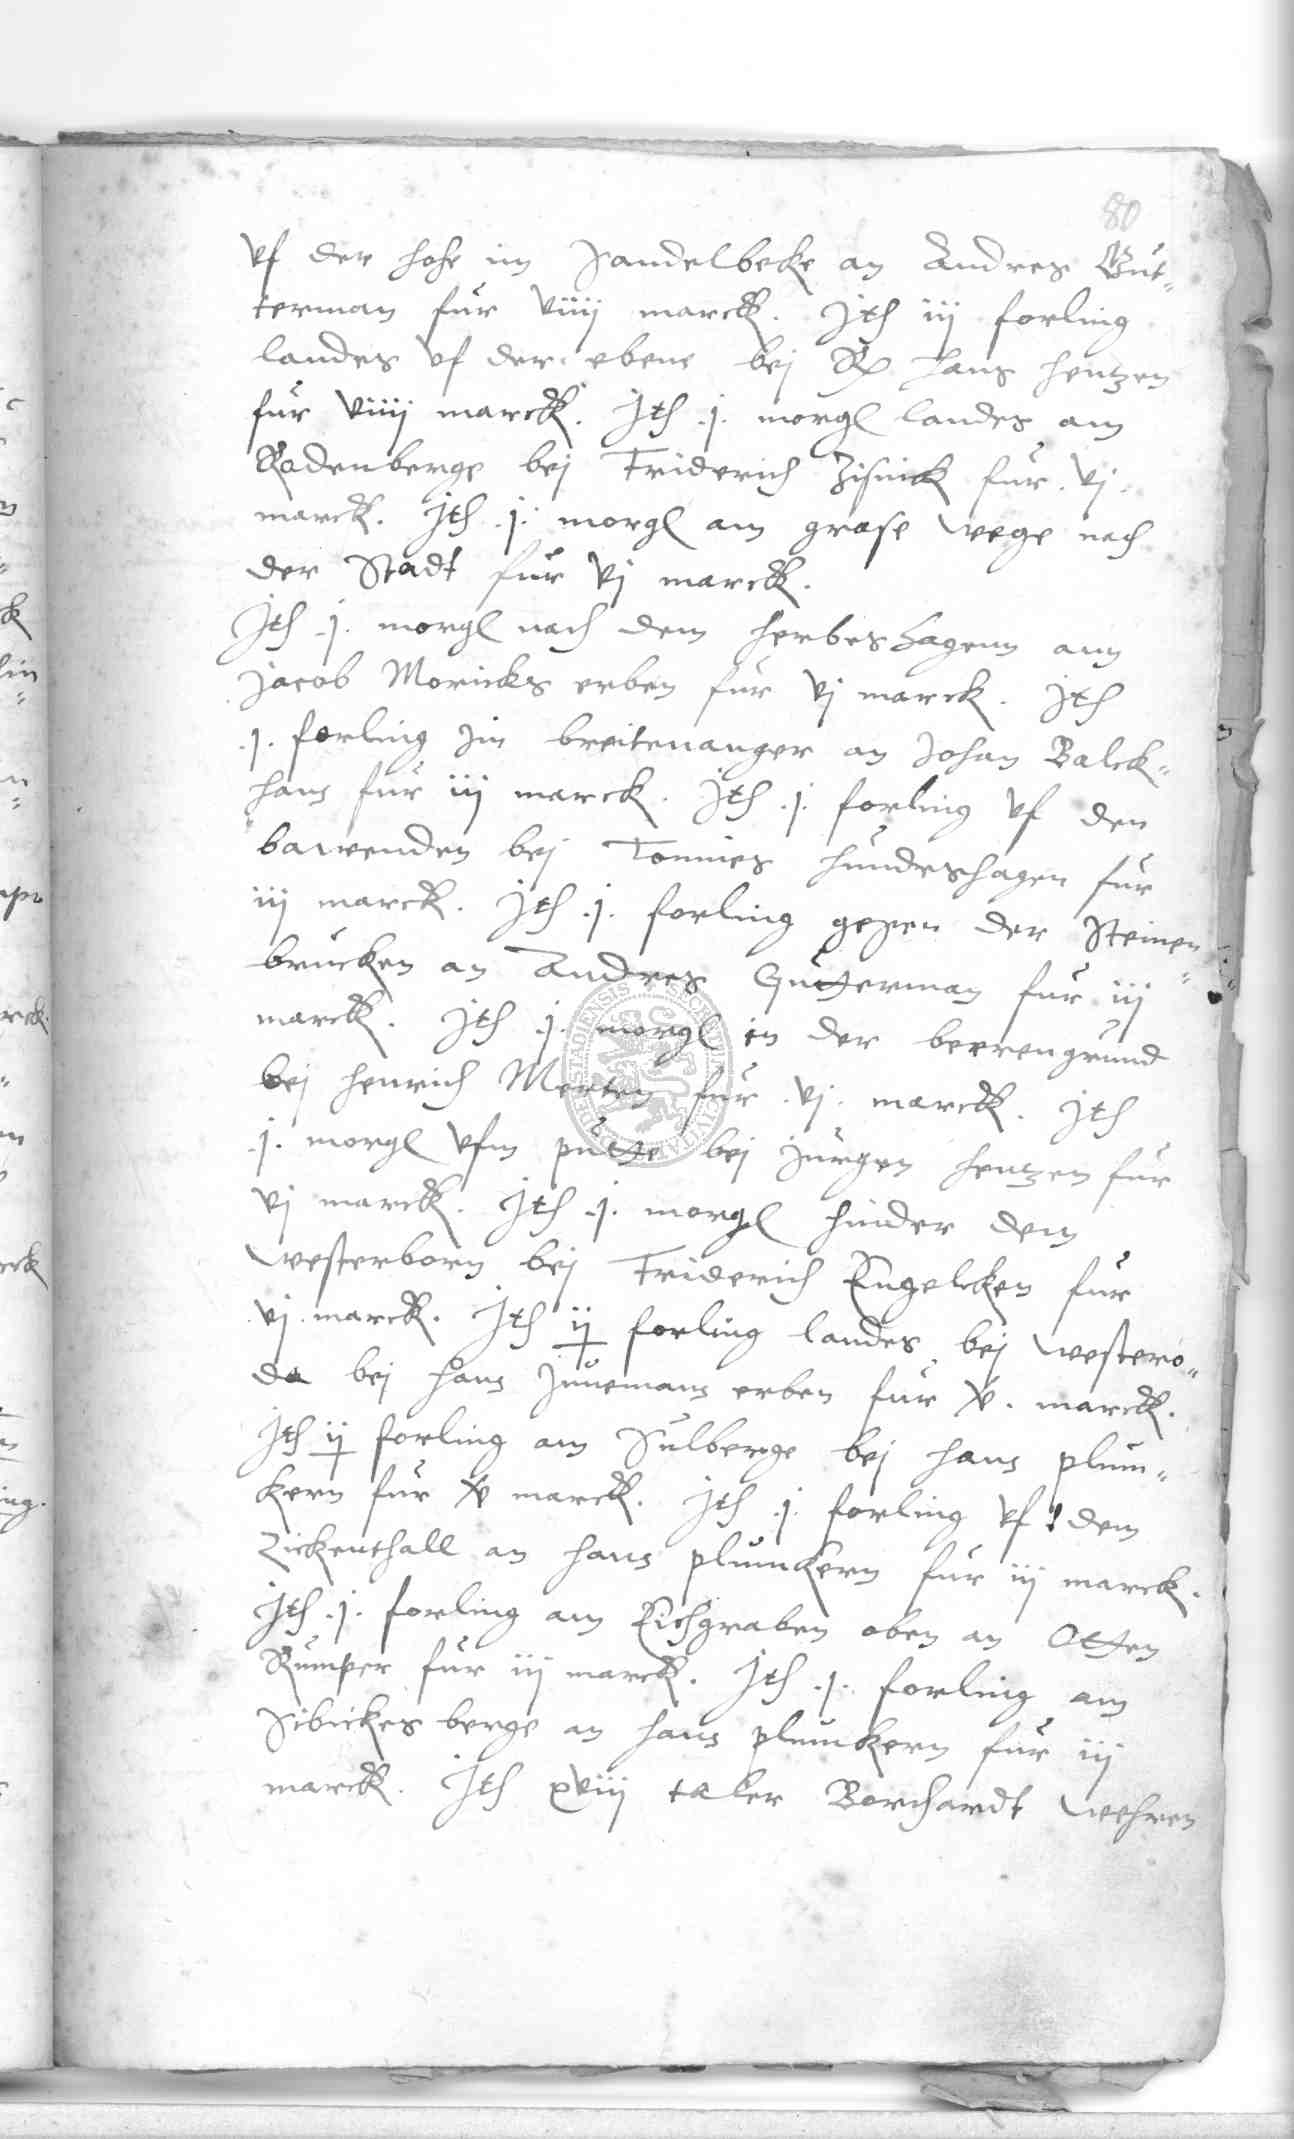 80
vf der hohe im Sandelbeke an Andres Gut„
terman fur viiij marck. Jth iij forling
landes vf der ebene bej Hans Hentzen
fur viiij marck. Jth .j. morgl landes am
Radenberge bej Friderich Zisick fur .vj.
marck. Jth .j. morgl am grase wege nach
der Stadt fur vj marck.
Jth .j. morgl nach dem herbeshagenn ann
Jacob Moricks erben fur vj marck. Jth
.j. forling Jm breitenanger an Johan Balck„
hans fur iij marck. Jth .j. forling vf den
bawenden bej Tonnies Hundeshagen fur
iij marck. Jth .j. forling gegen der Steinen„
brucken an Andres Gutterman fur iij
marck. Jth .j. morgl in der beerengrund
bej Henrich Merten fur .vj. marck. Jth
.j. morgl vfm putte bej Jurgen Hentzen fur
vj marck. Jth .j. morgl hinder dem
westerborn bej Friderich Engelcken fur
.vj. marck. Jth ij forling landes bej westero„
da bej Hans Junemans erben fur x. marck.
Jth ij forling am Sulberge bej Hans plum„
kern fur x marck. Jth .j. forling vf dem
Zickenthall an Hans plumkern fur iij marck.
Jth .j. forling am Eichgraben oben an Otten
Rumper fur iij marck. Jth .j. forling am
Sibickes berge an Hans plumckern fur iij
marck. Jth xviij taler Borchardt wehren
SECRETUM CIVITATIS DUDERSTADIENSIS